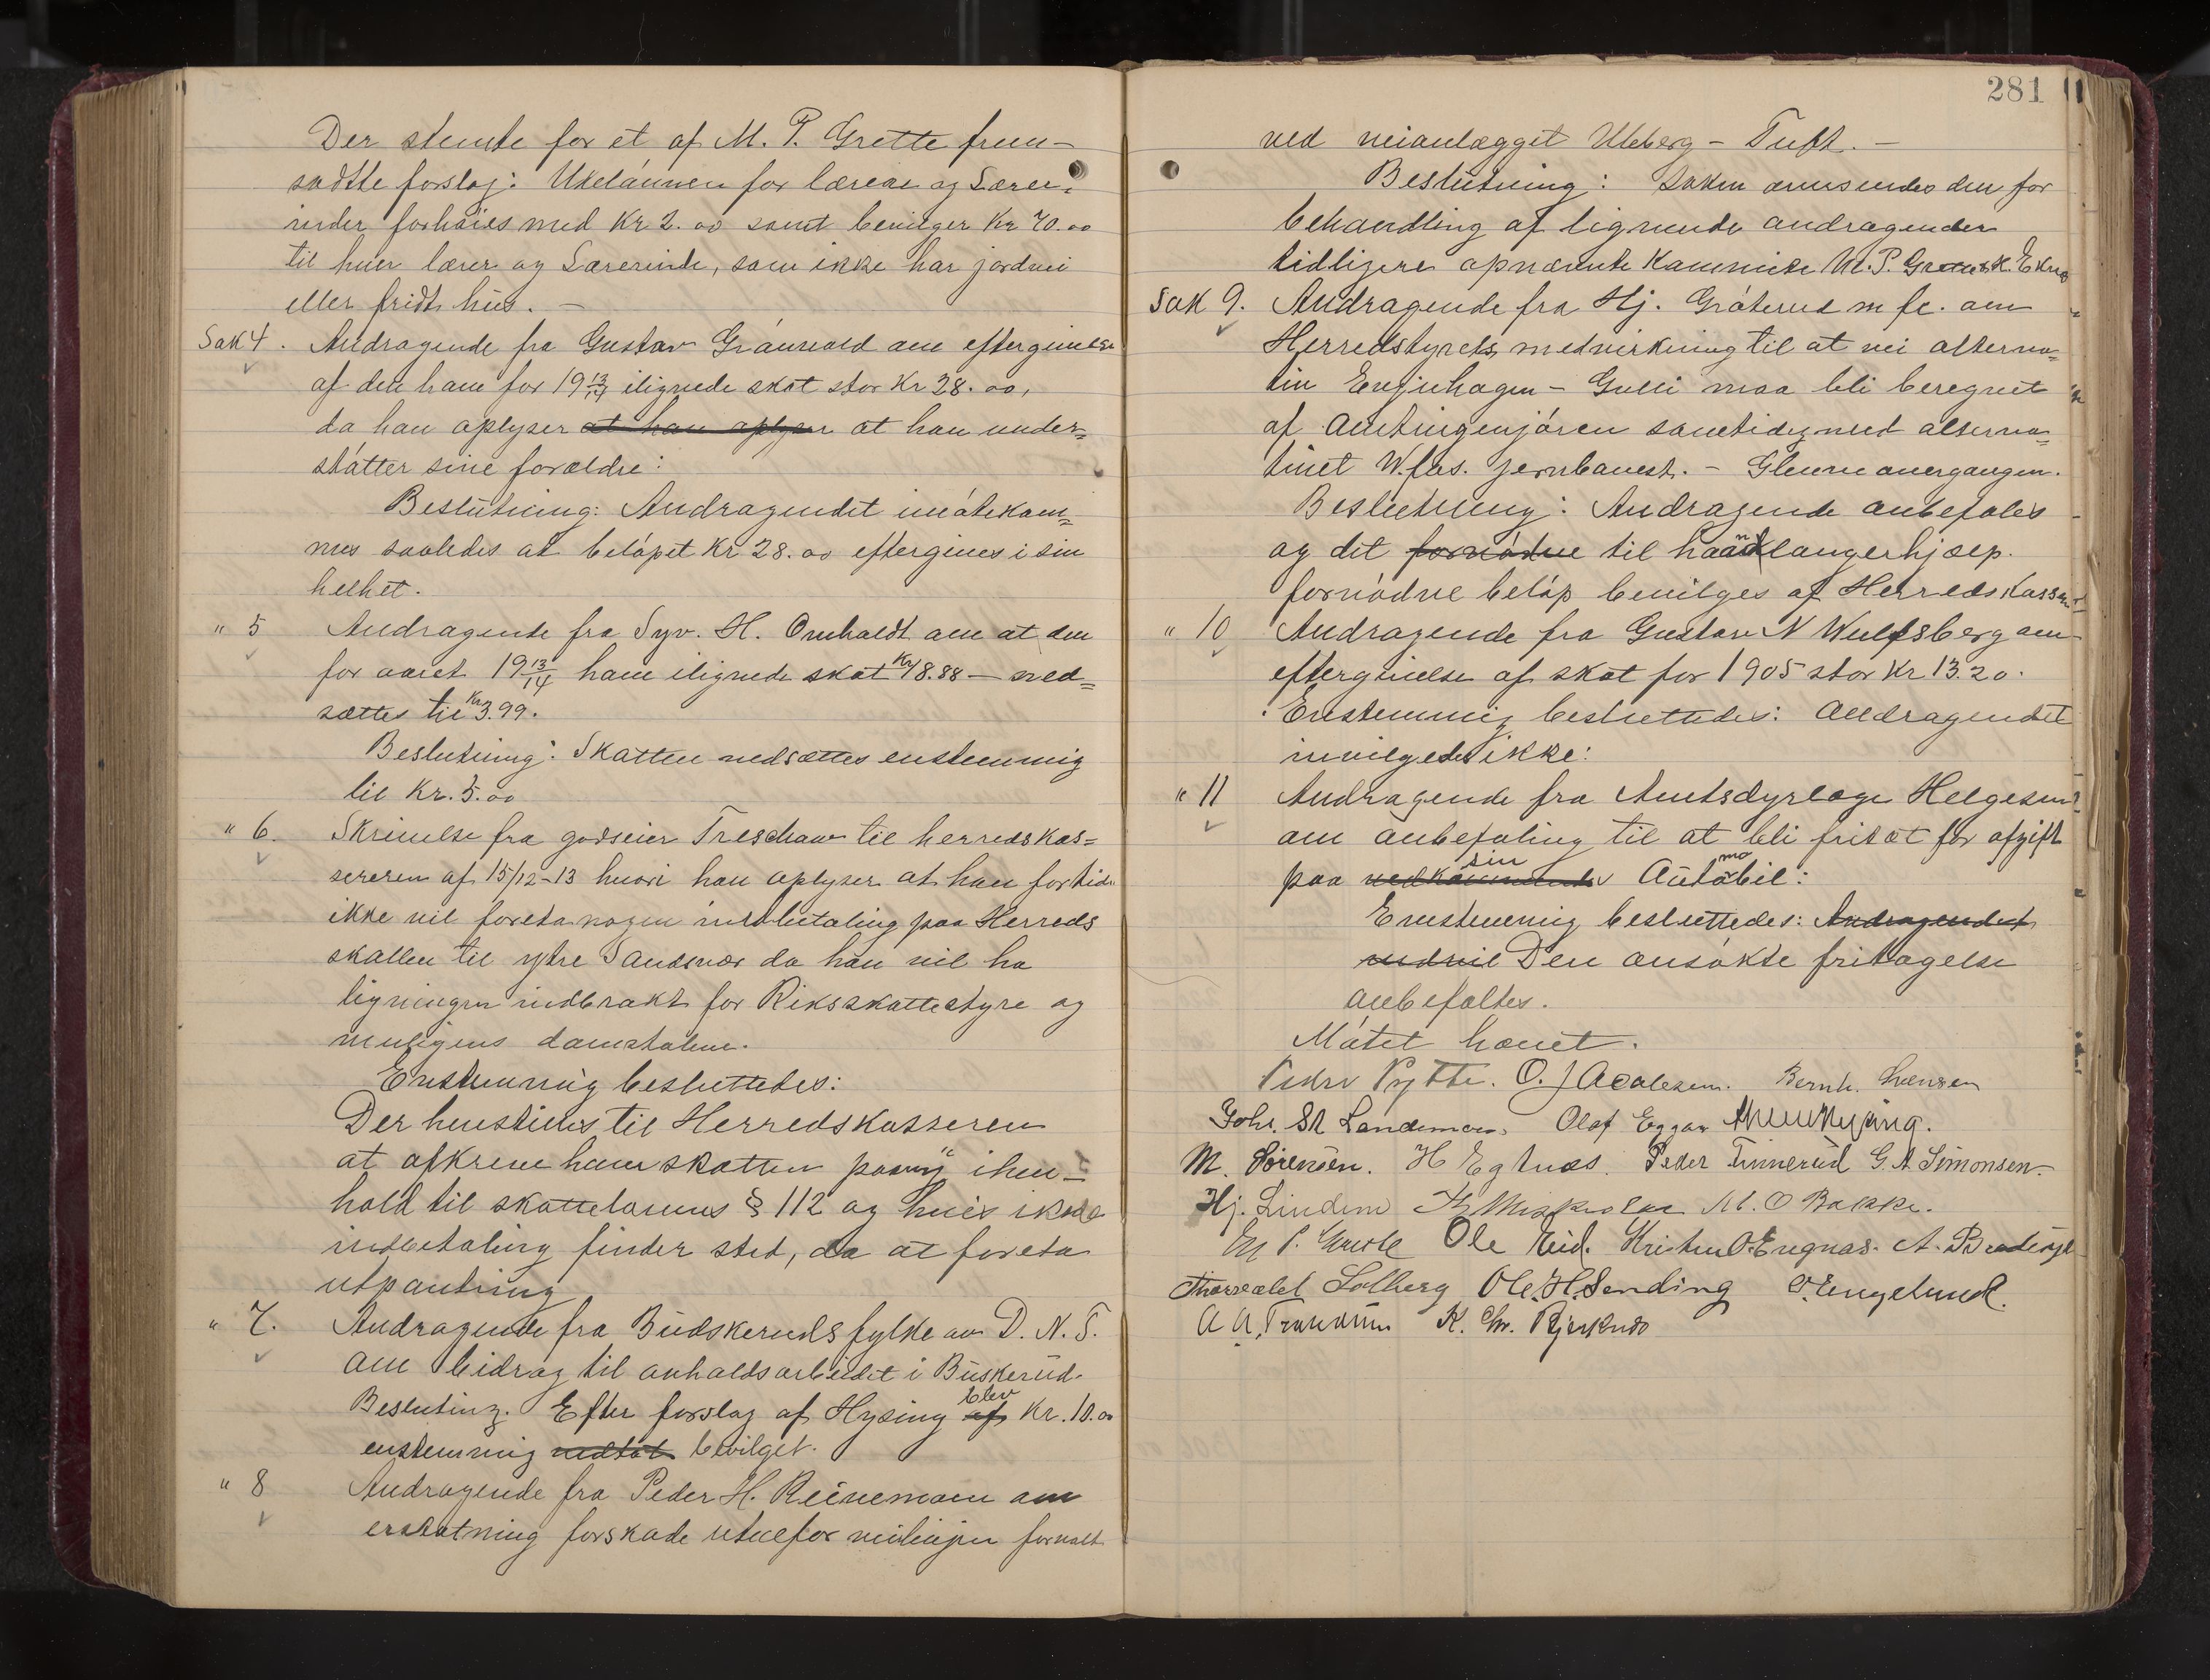 Der stemte for et af M. P. Grette frem-
sadtte forslag: Ukelønnen for lærere og Lærer-
inder forhøies med Kr 2.00 samt beviliger Kr 70.00
til hver lærer og Lærerinde, som ikke har jordvei
eller fridt hus. –
Sak 4. Andragende fra Gustav Grønvold om eftergivelse
af den ham for 19 13/14 ilignede skat stor Kr 28.00,
da han oplyser at han oplyser at han under=
støtter sine forældre:
Beslutning: Andragendet imøtekom=
mes saaledes at beløpet Kr 28.00 eftergives i sin
helhet.
" 5 Andragende fra Syv. H. Omholdt om at den
for aaret 19 13/14 ham ilignede skat Kr 48.88 – ned=
sættes til Kr 3.99.
Beslutning: Skatten nedsættes enstemmig
til Kr. 5.00
" 6. Skrivelse fra godseier Treschow til herredskas=
sereren af 15/12-13 hvori han oplyser at han fortiden
ikke vil foreta nogen indbetaling paa Herreds
skatten til ytre Sandsvær da han vil ha
ligningen indbrakt for Riksskattestyre og
muligens domstolene.
Enstemmig besluttedes:
Der henstilles til Herredskasseren
at afkreve ham skatten paany i hen-
hold til skattelovens § 112 og hvis ikke
indbetaling finder sted, da at foreta
utpantning
" 7. Andragende fra Budskeruds fylke av D. N. T.
om bidrag til avholdsarbeidet i Buskerud.
Beslutning. Efter forslag af Hysing af blev Kr. 10.00
enstemmig vedtat bevilget.
" 8 Andragende fra Peder H. Reinemoen om
erstatning for skade utenfor veilinjen forvolt
281
ved veianlægget Uleberg – Tuft. –
Beslutning: Saken oversendes den for
behandling af lignende andragender
tidligere opnævnte Kommite M. P. Grette & K. Eknes
Sak 9. Andragende fra Hj. Gråterud m fl. om
Herredstyrets medvirkning til at vei alterna=
tiv Enginhagen – Gulli maa bli beregnet
af Amtingenjøren samtidig med alterna=
tivet W.fos. jernbanest. – Glenneovergangen.
Beslutning: Andragende anbefales
og det fornødne til haandlangerhjælp.
fornødne beløp bevilges af Herredskassen
" 10 Andragende fra Gustav N Wulfsberg om
eftergivelse af skat for 1905 stor Kr 13.20.
Enstemmig besluttedes: Andragendet
invilgedes ikke:
" 11 Andragende fra Amtsdyrlæge Helgesen
om anbefaling til at bli fritat for afgift
paa vedkommende sin Automobil:
Enstemmig besluttedes: Andragendet
Den ansøkte fritagelse
anbefaltes.
Møtet hævet.
Peder Pytte. O. J Aalesen. Bernh. Svensen
Johs. St Landemoen. Olaf Eggar Hysing.
M. Sørensen. H Egtnæs. Peder Tinnerud G. A. Simonsen.
Hj. Lindem M. O Bakke.
M P. Grette Ole Eid. Kristen O. Engnæs. A.
Thorvald Solberg Ole. H. Sending O. Engelund.
A A. Trandum K. Chr. Bjerknes